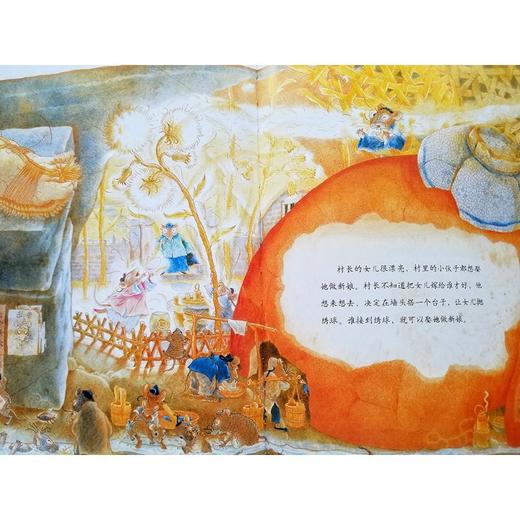 村长的女儿很漂亮，村里的小伙子都想娶
她做新娘。村长不知道把女儿嫁给谁才好，他
想来想去，决定在墙头搭一个台子，让女儿抛
绣球。谁接到绣球，就可以娶她做新娘。